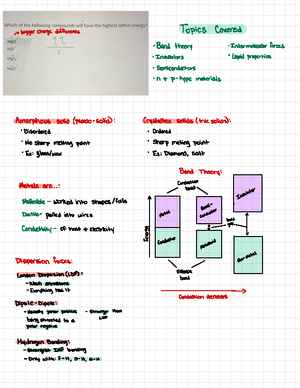 Which of the following compounds will have the highest lattice energy?
bigger charge difference
Topics Covered
• Band theory
• Insulators
• Semiconductors
• n + p-type materials
• Intermolecular forces
• Liquid properties
Amorphous solid (pseudo-solid):
• Disordered
• No sharp melting point
• Ex: glass/wax
Crystalline solids (true solids):
• Ordered
• Sharp melting point
• Ex: Diamond, salt
Metals are..:
Malleable - worked into shapes/foils
Ductile - pulled into wires
Conductivity - of heat + electricity
Band Theory:
Conduction band
Metal
Semi-conductor
Insulator
Band gap
Energy
Conductor
Metalloid
Non-metal
Valence band
Conduction decreases
Dispersion forces:
London Dispersion (LDF):
- Weak attractions
- Everything has it
Dipole-Dipole:
- Usually polar positive being attracted to a polar negative
- Stronger than LDF
Hydrogen Bonding:
- Strongest IMF bonding
- Only with: F-H, O-H, N-H